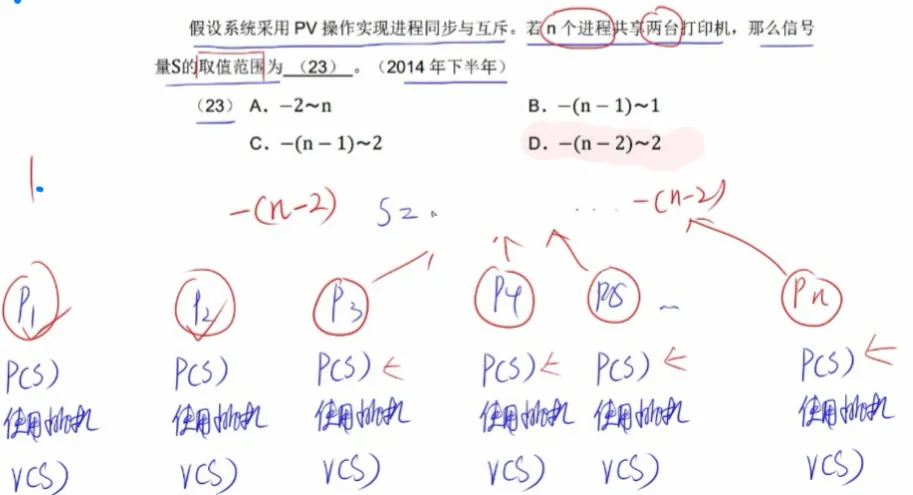 假设系统采用 PV 操作实现进程同步与互斥。若 n 个进程共享两台打印机，那么信号
量S的取值范围为 （23） 。（2014 年下半年）
（23） A. −2～n B. −(n − 1)～1
C. −(n − 1)～2 D. −(n − 2)～2
1.
-(n-2) S= . ... -(n-2)
P1 P2 P3 P4 P5 ... Pn
P(S) P(S) P(S) P(S) P(S) P(S)
使用打印机 使用打印机 使用打印机 使用打印机 使用打印机 使用打印机
V(S) V(S) V(S) V(S) V(S) V(S)